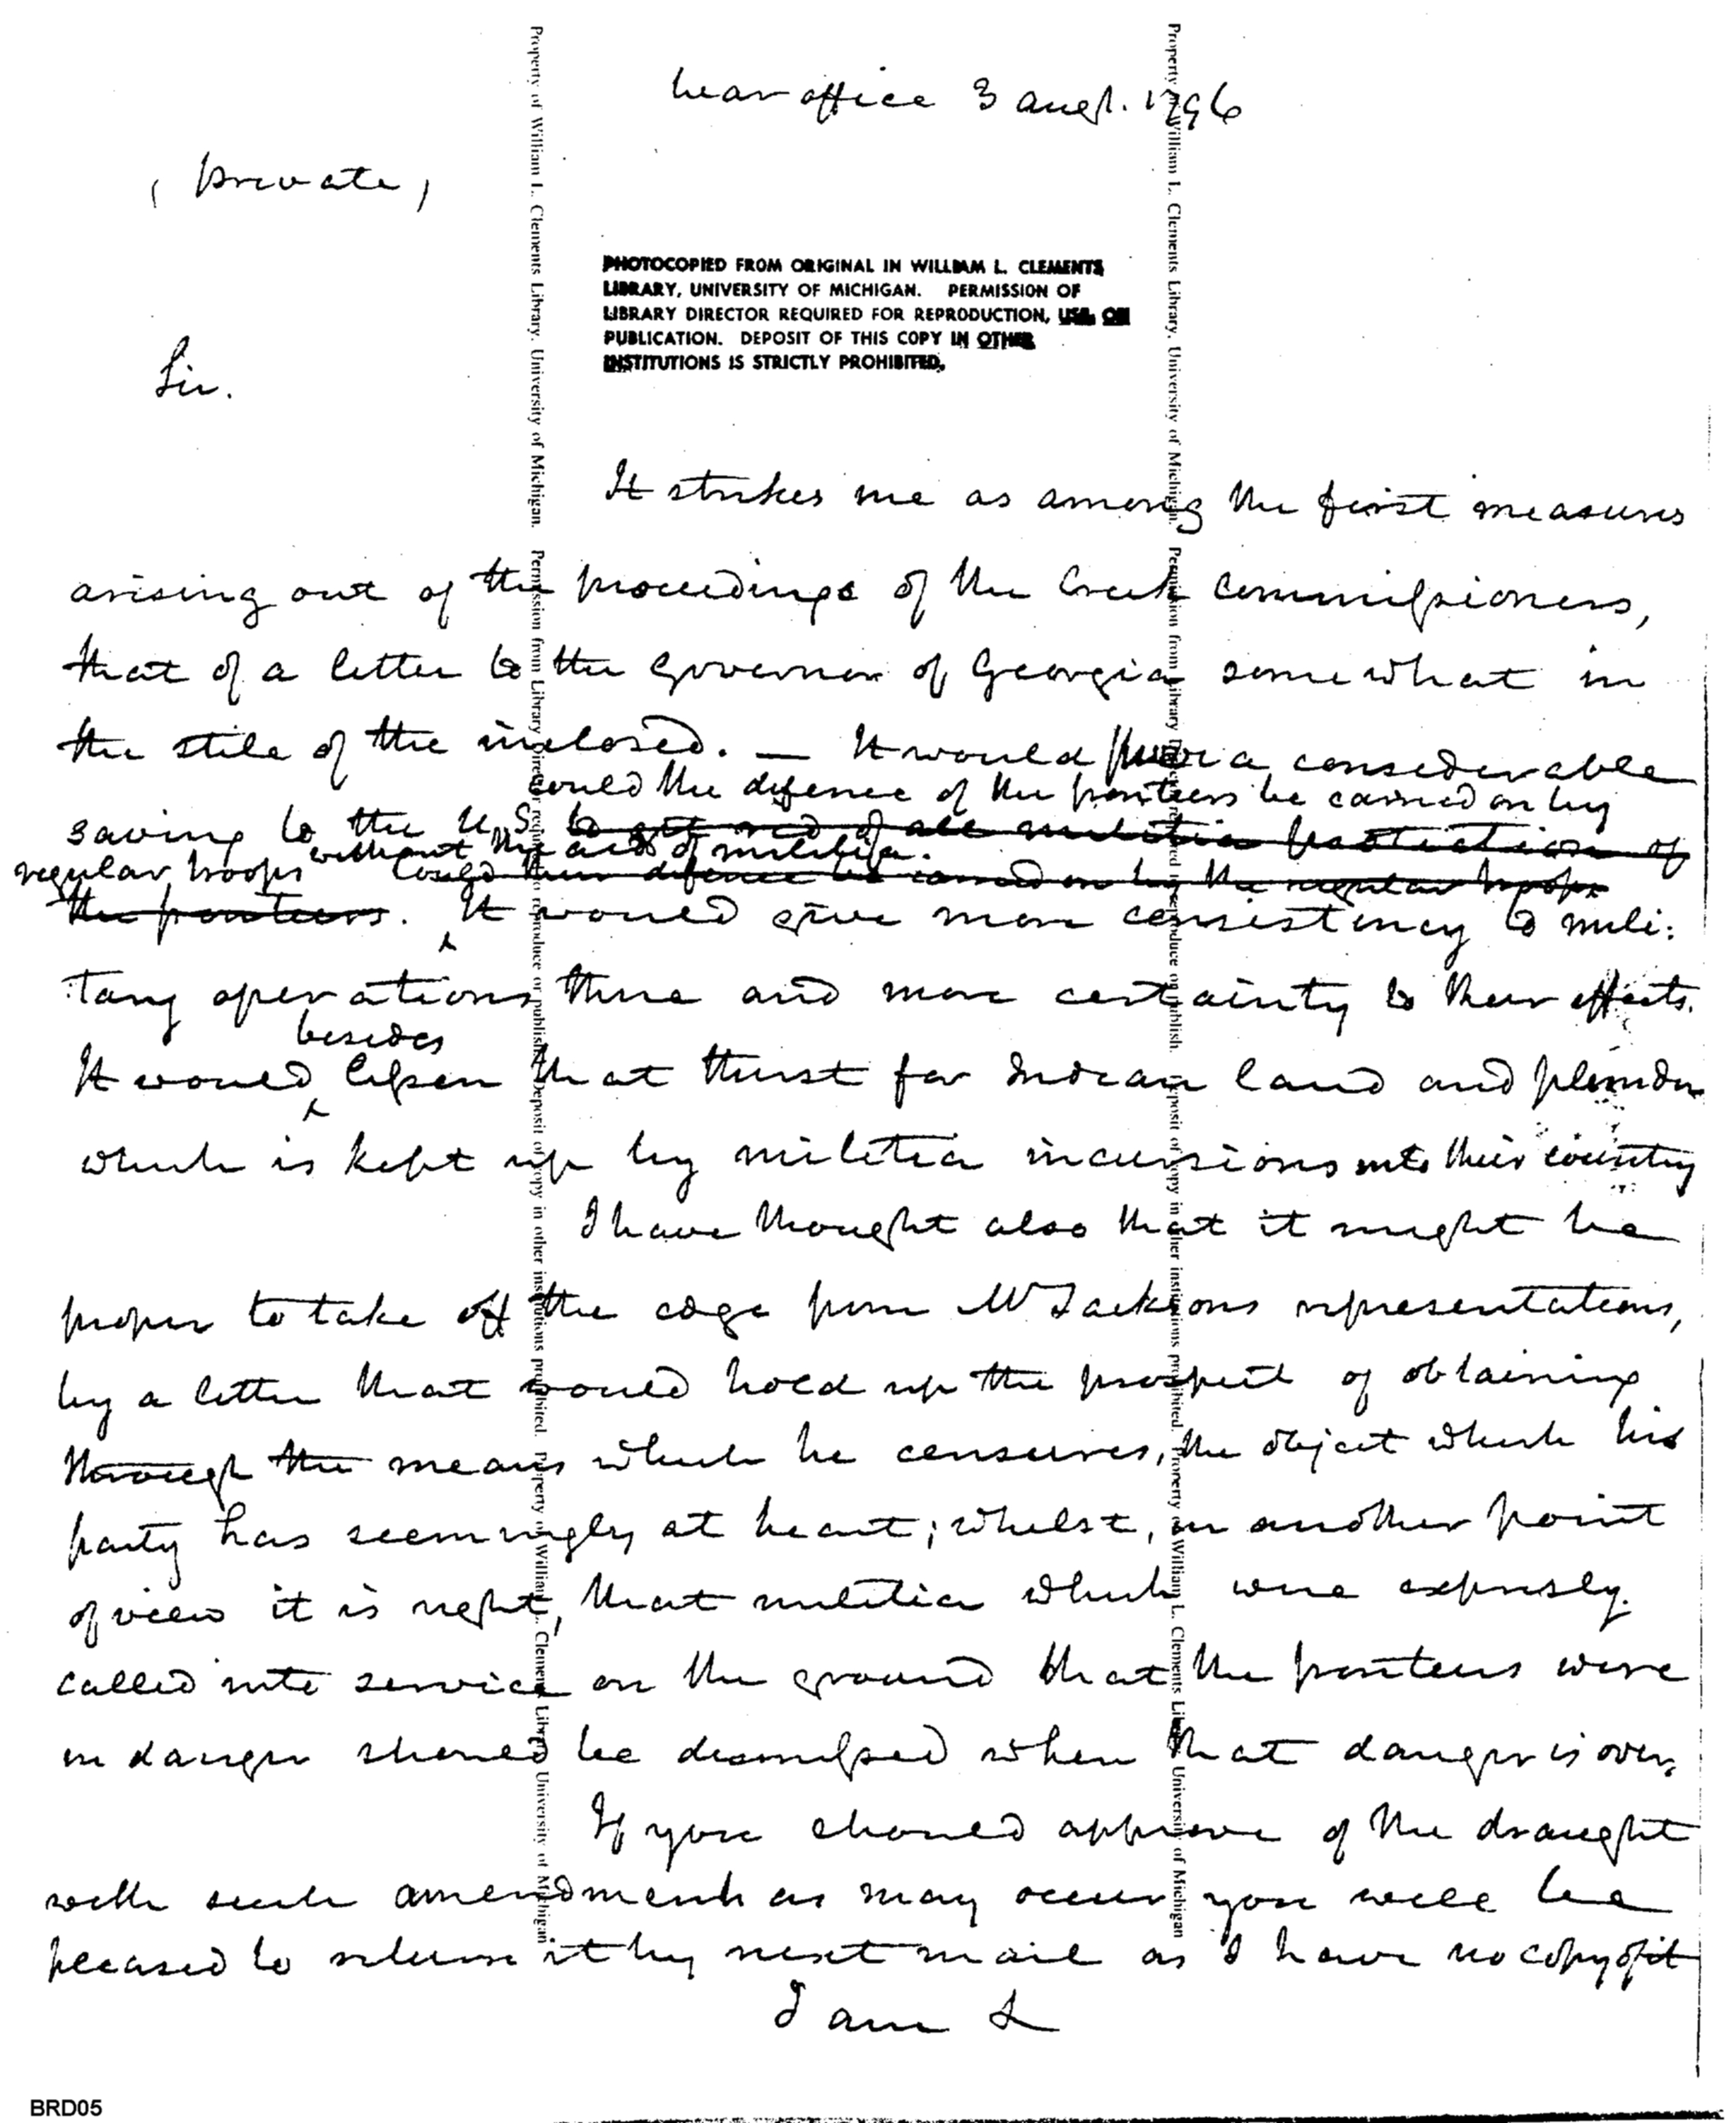 War office 3 augt. 1796
(private)
PHOTOCOPIED FROM ORIGINAL IN WILLIAM L. CLEMENTS
LIBRARY, UNIVERSITY OF MICHIGAN. PERMISSION OF
LIBRARY DIRECTOR REQUIRED FOR REPRODUCTION, USE, OR
PUBLICATION. DEPOSIT OF THIS COPY IN OTHER
INSTITUTIONS IS STRICTLY PROHIBITED.
Sir.
It strikes me as among the first measures
arising out of the proceedings of the Creek commissioners,
that of a letter to the governor of Georgia somewhat in
the stile of the inclosed. — It would be a considerable
could the defence of the frontiers be carried on by
saving to the U. S. to get rid of all militia protection of
regular troops without the aid of militia.
could their defence be carried on by the regular troops
the frontiers. It would give more consistency to mili:
:tary operations there and more certainty to their effects.
besides
It would lessen that thirst for Indian land and plunder
which is kept up by militia incursions into their country
I have thought also that it might be
proper to take off the edge from Mr Jacksons representations,
by a letter that would hold up the prospect of obtaining
through the means which he censures, the object which his
party has seemingly at heart; whilst, in another point
of view it is right, that militia which were expressly
called into service on the ground that the frontiers were
in danger should be dismissed when that danger is over.
If you should approve of the draught
with such amendments as may occur you will be
pleased to return it by next mail as I have no copy of it
I am &
Property of William L. Clements Library, University of Michigan. Permission from Library Director required to reproduce or publish. Deposit of copy in other institutions prohibited. Property of William L. Clements Library, University of Michigan
Property of William L. Clements Library, University of Michigan. Permission from Library Director required to reproduce or publish. Deposit of copy in other institutions prohibited. Property of William L. Clements Library, University of Michigan
BRD05